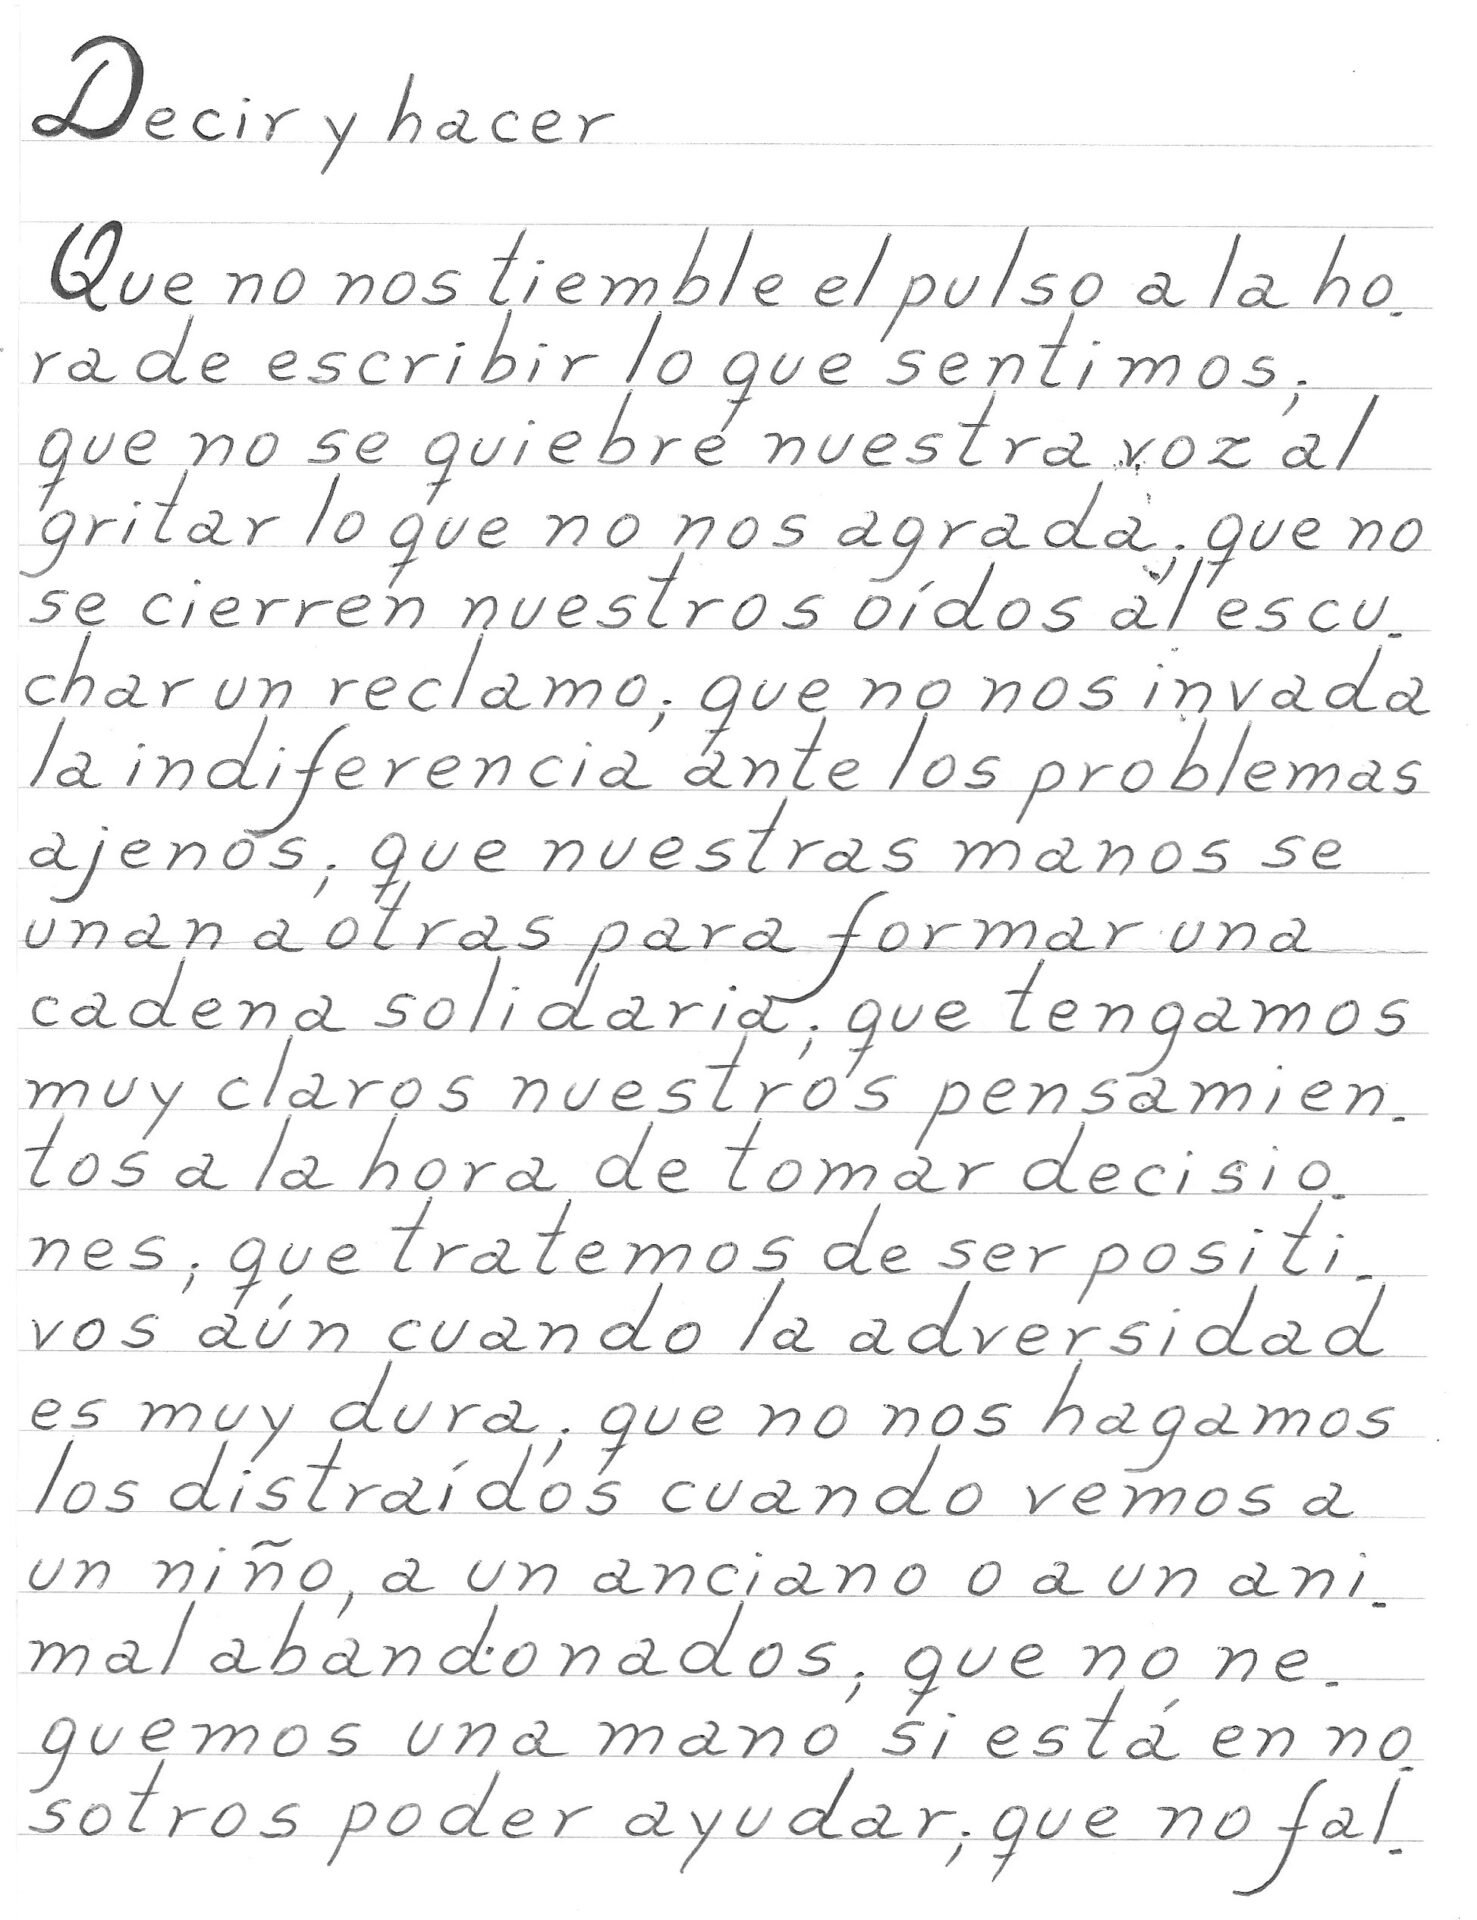 Decir y hacer
Que no nos tiemble el pulso a la ho-
ra de escribir lo que sentimos;
que no se quiebre nuestra voz al
gritar lo que no nos agrada; que no
se cierren nuestros oídos al escu-
char un reclamo; que no nos invada
la indiferencia ante los problemas
ajenos; que nuestras manos se
unan a otras para formar una
cadena solidaria; que tengamos
muy claros nuestros pensamien-
tos a la hora de tomar decisio-
nes; que tratemos de ser positi-
vos aún cuando la adversidad
es muy dura; que no nos hagamos
los distraídos cuando vemos a
un niño, a un anciano o a un ani-
mal abandonados; que no ne-
guemos una mano si está en no-
sotros poder ayudar; que no fal-